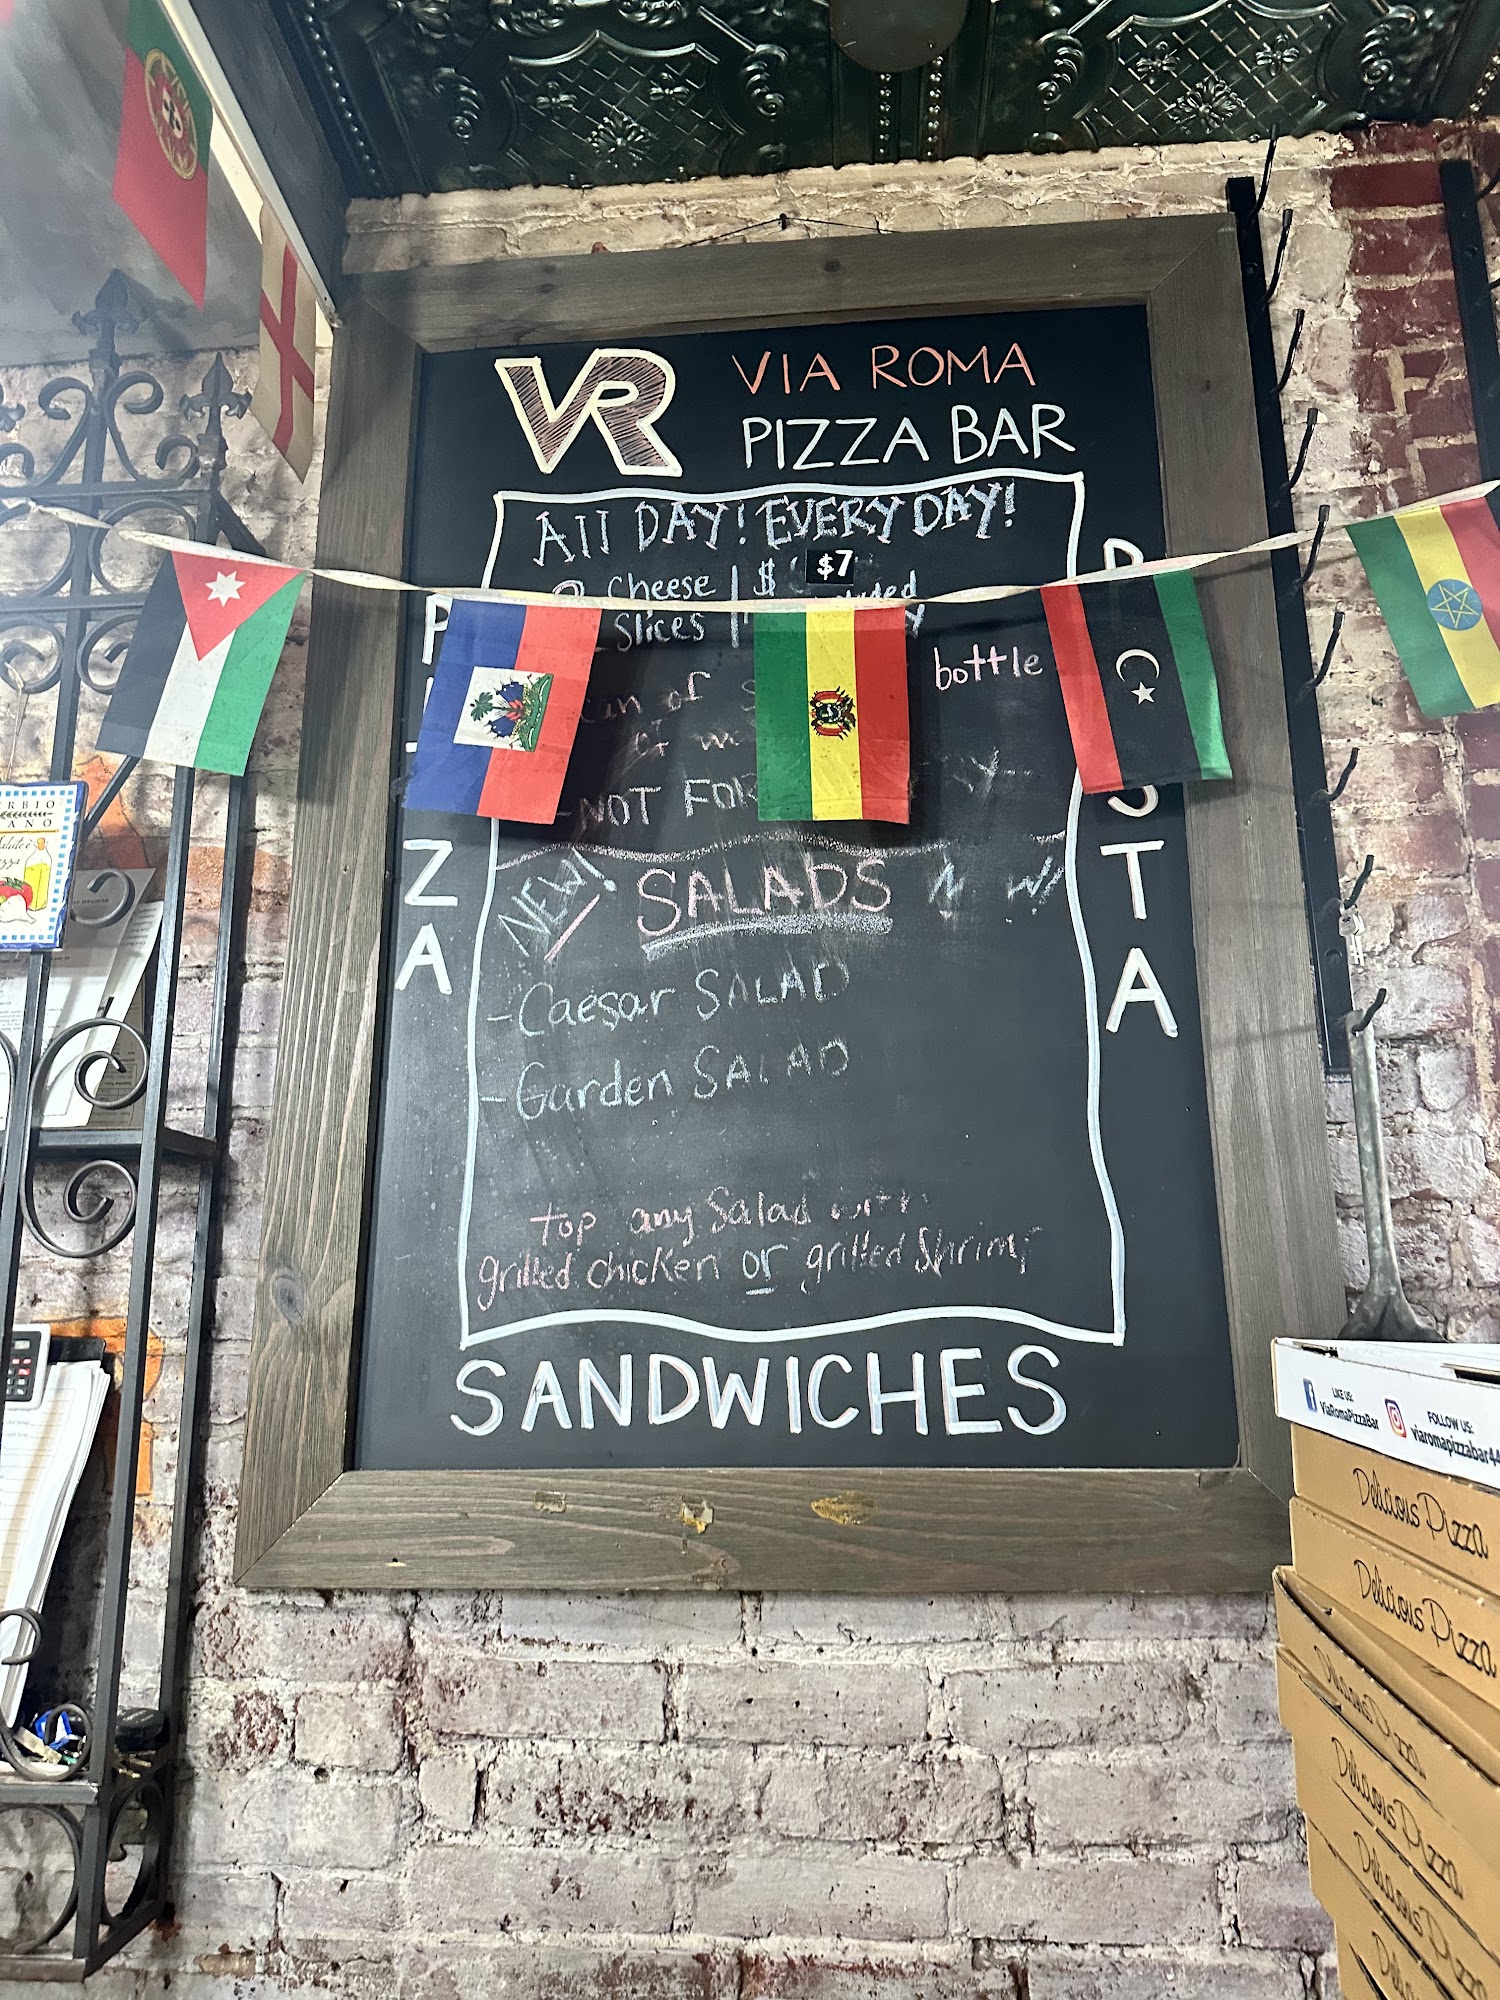 VR
VIA ROMA
PIZZA BAR
All DAY! EVERYDAY!
$7
cheese | $
Slices |
bottle
can of
of
NOT FOR
NEW!
SALADS
- Caesar SALAD
- Garden SALAD
top any Salad with
grilled chicken or grilled Shrimp
SANDWICHES
P
ZA
STA
LIKE US:
ViaRomaPizzaBar
FOLLOW US:
viaromapizzabar44
Delicious Pizza
Delicious Pizza
Delicious Pizza
Delicious Pizza
Delicious Pizza